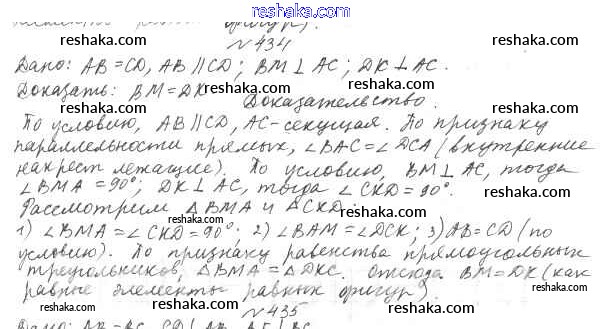 reshaka.com
фигур).
№434
reshaka.com reshaka.com reshaka.com
Дано: AB=CD, AB∥CD; BM⊥AC; DK⊥AC.
Доказать: BM=DK
Доказательство.
По условию, AB∥CD, AC-секущая. По признаку
reshaka.com reshaka.com reshaka.com
параллельности прямых, ∠BAC=∠DCA (внутренние
накрест лежащие). По условию, BM⊥AC, тогда
∠BMA=90°; DK⊥AC, тогда ∠CKD=90°.
reshaka.com reshaka.com reshaka.com
Рассмотрим △BMA и △CKD:
1) ∠BMA=∠CKD=90°; 2) ∠BAM=∠DCK; 3) AB=CD (по
условию). По признаку равенства прямоугольных
reshaka.com reshaka.com reshaka.com
треугольников, △BMA=△DKC. Отсюда BM=DK (как
равные элементы равных фигур).
reshaka.com reshaka.com reshaka.com
№435
Дано: AB=BC, CD